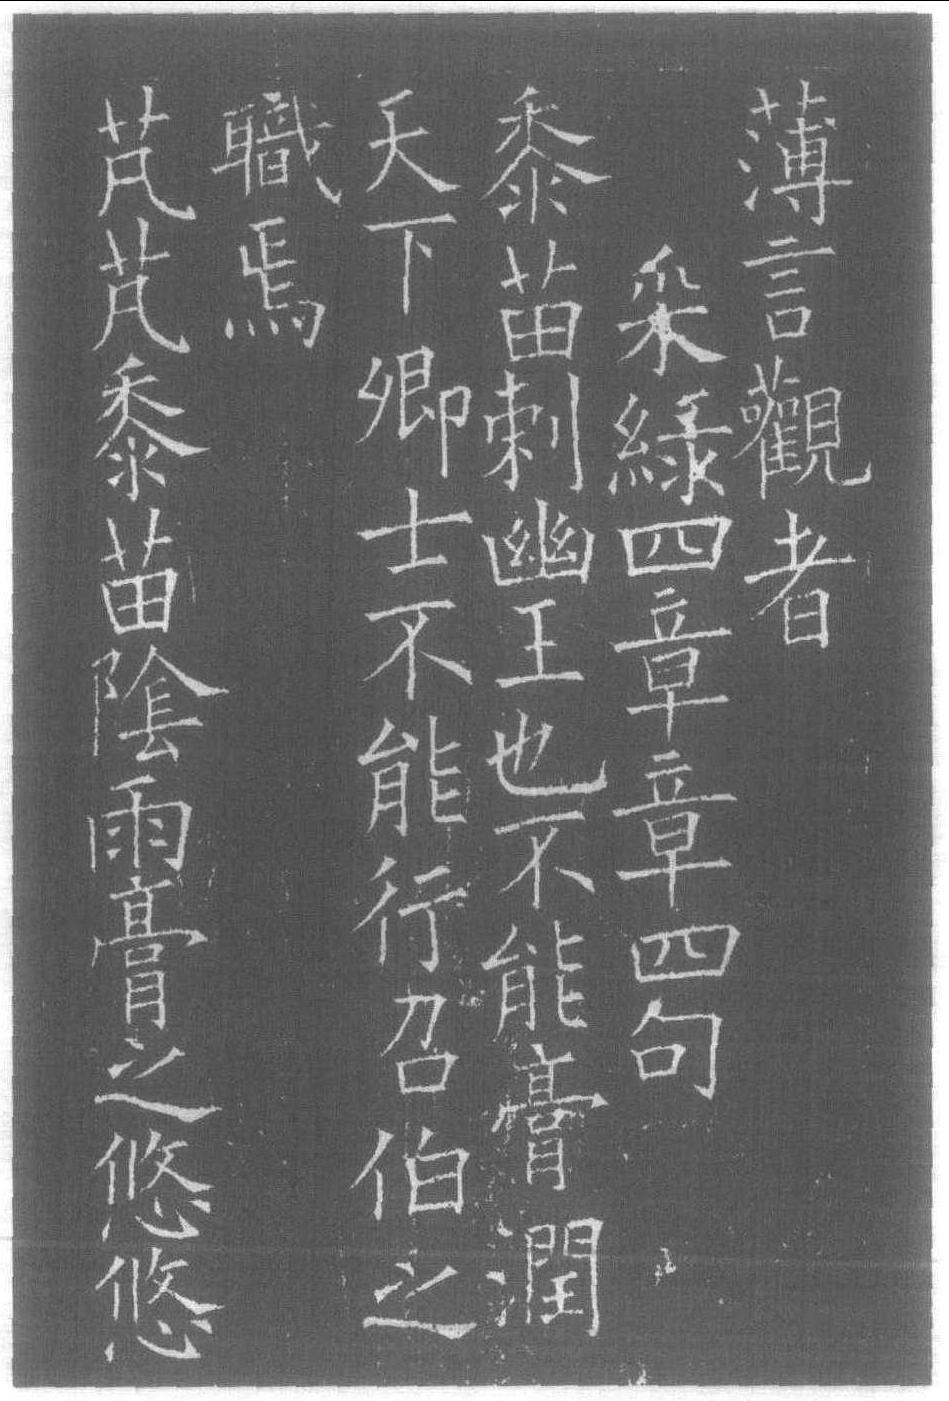 薄言觀者
采綠四章章四句
黍苗刺幽王也不能膏潤
天下卿士不能行召伯之
職焉
芃芃黍苗陰雨膏之悠悠